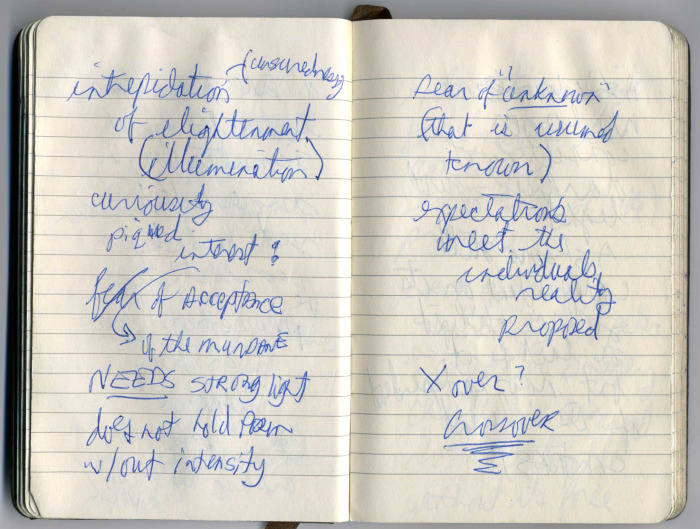 intrepidation
of elightenment
(illumination)
curiousity
piqued
interest?
fear of ACCEPTANCE
of the MUNDANE
NEEDS STRONG light
does not hold
w/out intensity
fear of "unknown"
(that is
known)
expectations
meet the
individuals
reality
proposed
X over?
Crossover